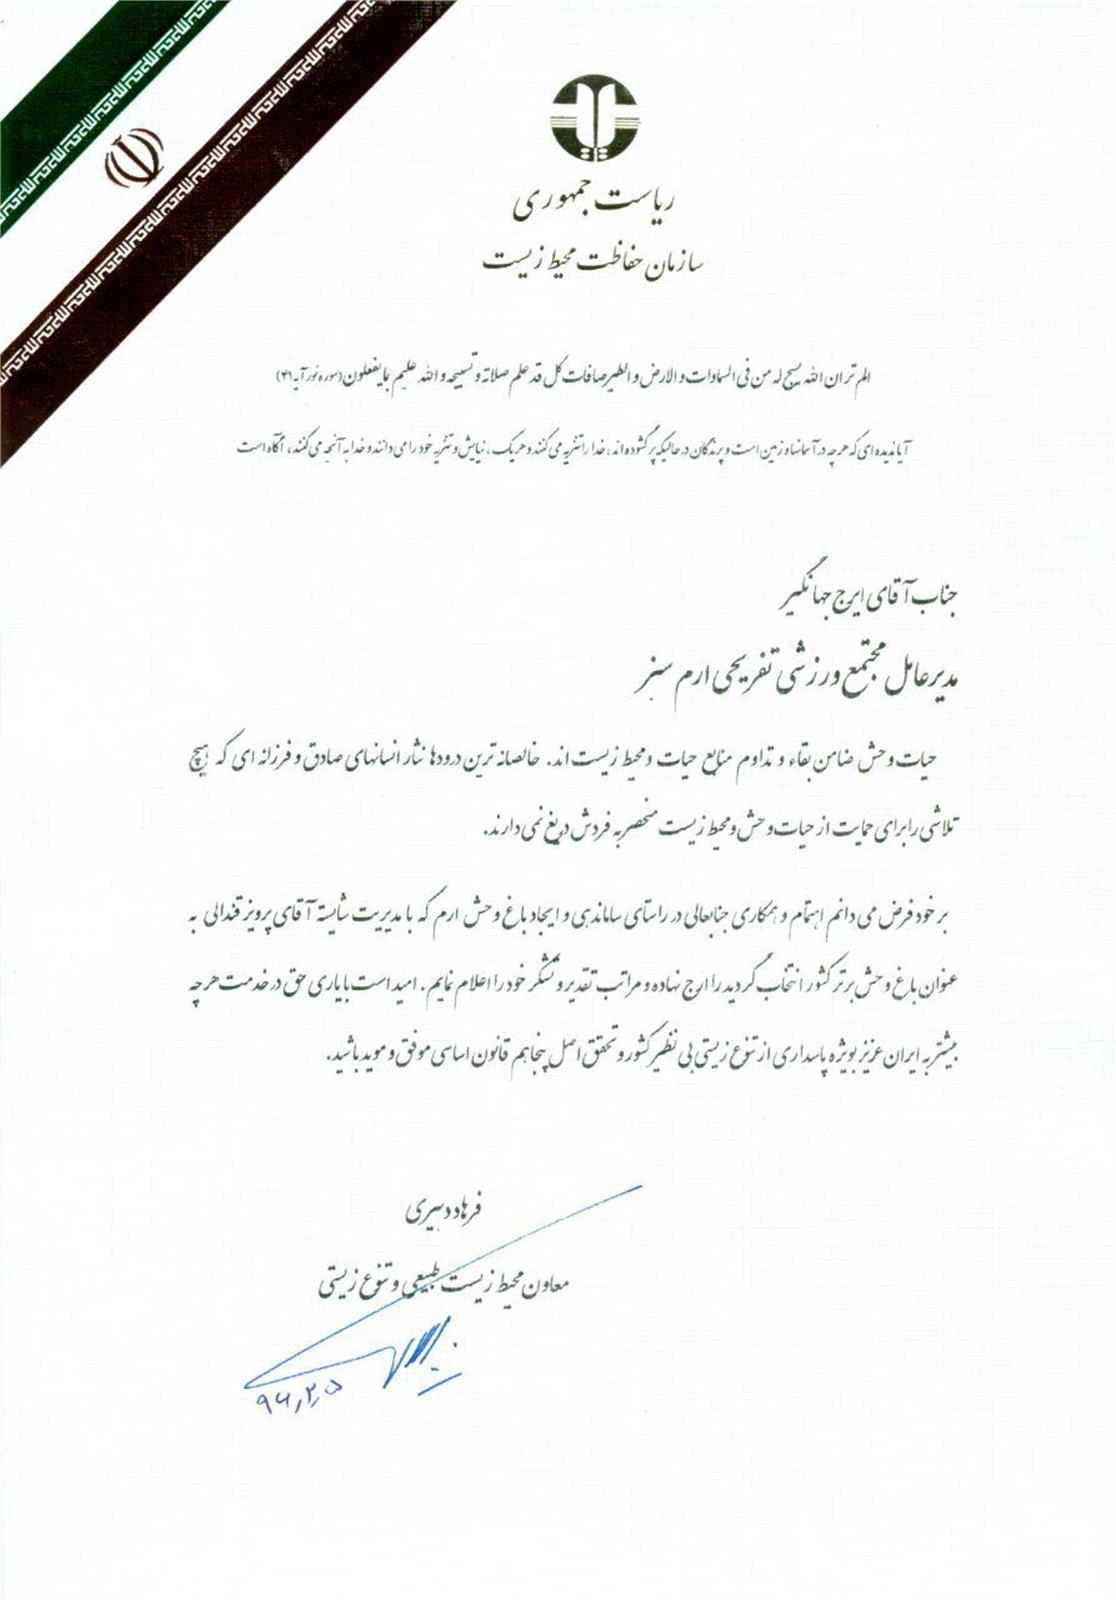 ریاست جمهوری
سازمان حفاظت محیط زیست
الم تر ان الله یسبح له من فی السماوات و الارض و الطیر صافات کل قد علم صلاته و تسبیحه و الله علیم بما یفعلون (سوره نور آیه ۴۱)
آیا ندیده ای که هر چه در آسمانها و زمین است و پرندگان در حالیکه پر گشوده اند، خدا را تنزیه می کنند و هر یک، نیایش و تنزیه خود را می دانند و خدا به آنچه می کنند، آگاه است
جناب آقای ایرج جهانگیر
مدیرعامل مجتمع ورزشی تفریحی ارم سبز
حیات وحش ضامن بقاء و تداوم منابع حیات و محیط زیست اند. خالصانه ترین درودها نثار انسانهای صادق و فرزانه ای که هیچ
تلاشی را برای حمایت از حیات وحش و محیط زیست منحصر به فردش دریغ نمی دارند.
بر خود فرض می دانم اهتمام و همکاری جنابعالی در راستای ساماندهی و ایجاد باغ وحش ارم که با مدیریت شایسته آقای پرویز قندالی به
عنوان باغ وحش برتر کشور انتخاب گردید را ارج نهاده و مراتب تقدیر و تشکر خود را اعلام نمایم. امید است با یاری حق در خدمت هر چه
بیشتر به ایران عزیز بویژه پاسداری از تنوع زیستی بی نظیر کشور و تحقق اصل پنجاهم قانون اساسی موفق و موید باشید.
فرهاد دبیری
معاون محیط زیست طبیعی و تنوع زیستی
۹۶٫۲٫۵